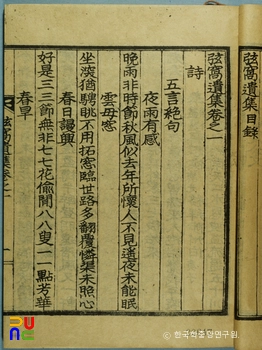 弦窩遺集目錄
弦窩遺集卷之一
詩
五言絶句
夜雨有感
晩雨非時節秋風似去年所懷人不見遥夜未能眠
雲母窓
坐淡猶騁眺不用拓窓臨世路多翻覆憐渠未照心
春日謾興
好是三三節無非七七花偸閒八八叟一一點芳華
春旱
弦窩遺集卷之一 一
© 한국학중앙연구원.